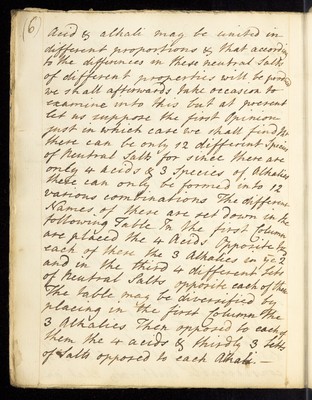 (6)
Acid & alkali may be united in
different proportions & that according
to the differences in these neutral Salts
of different properties will be produced
we shall afterwards take occasion to
examine into this but at present
let us suppose the first Opinion
just in which case we shall find
there can be only 12 different Species
of Neutral Salts for since there are
only 4 acids & 3 Species of Alkalies
these can only be formed into 12
various combinations The different
Names of these are set down in the
following Table In the first Column
are placed the 4 Acids Opposite to
each of these the 3 Alkalies in ye 2d
and in the third 4 different Sets
of Neutral Salts opposite each of these
The table may be diversified by
placing in the first Column the
3 Alkalies Then opposed to each of
them the 4 acids & thirdly 3 Sets
of Salts opposed to each Alkali. —